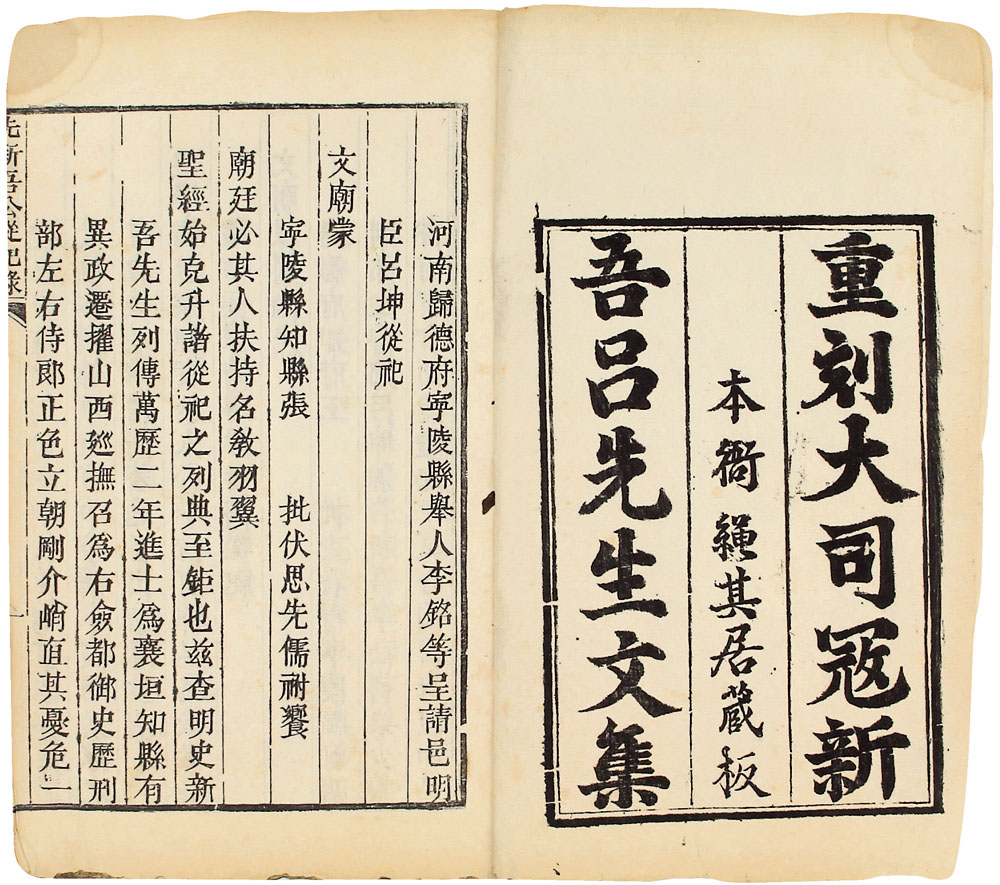 重刻大司寇新
本衙 繩其居藏板
吾呂先生文集
河南歸德府寧陵縣舉人李銘等呈請邑明
臣呂坤從祀
文廟蒙
寧陵縣知縣張 批伏思先儒祔饗
廟廷必其人扶持名教羽翼
聖經始克升諧從祀之列典至鉅也茲查明史新
吾先生列傳萬歷二年進士爲襄垣知縣有
異政遷擢山西廵撫召爲右僉都御史歷刑
部左右侍郞正色立朝剛介峭直其憂危一
先新吾公從祀錄